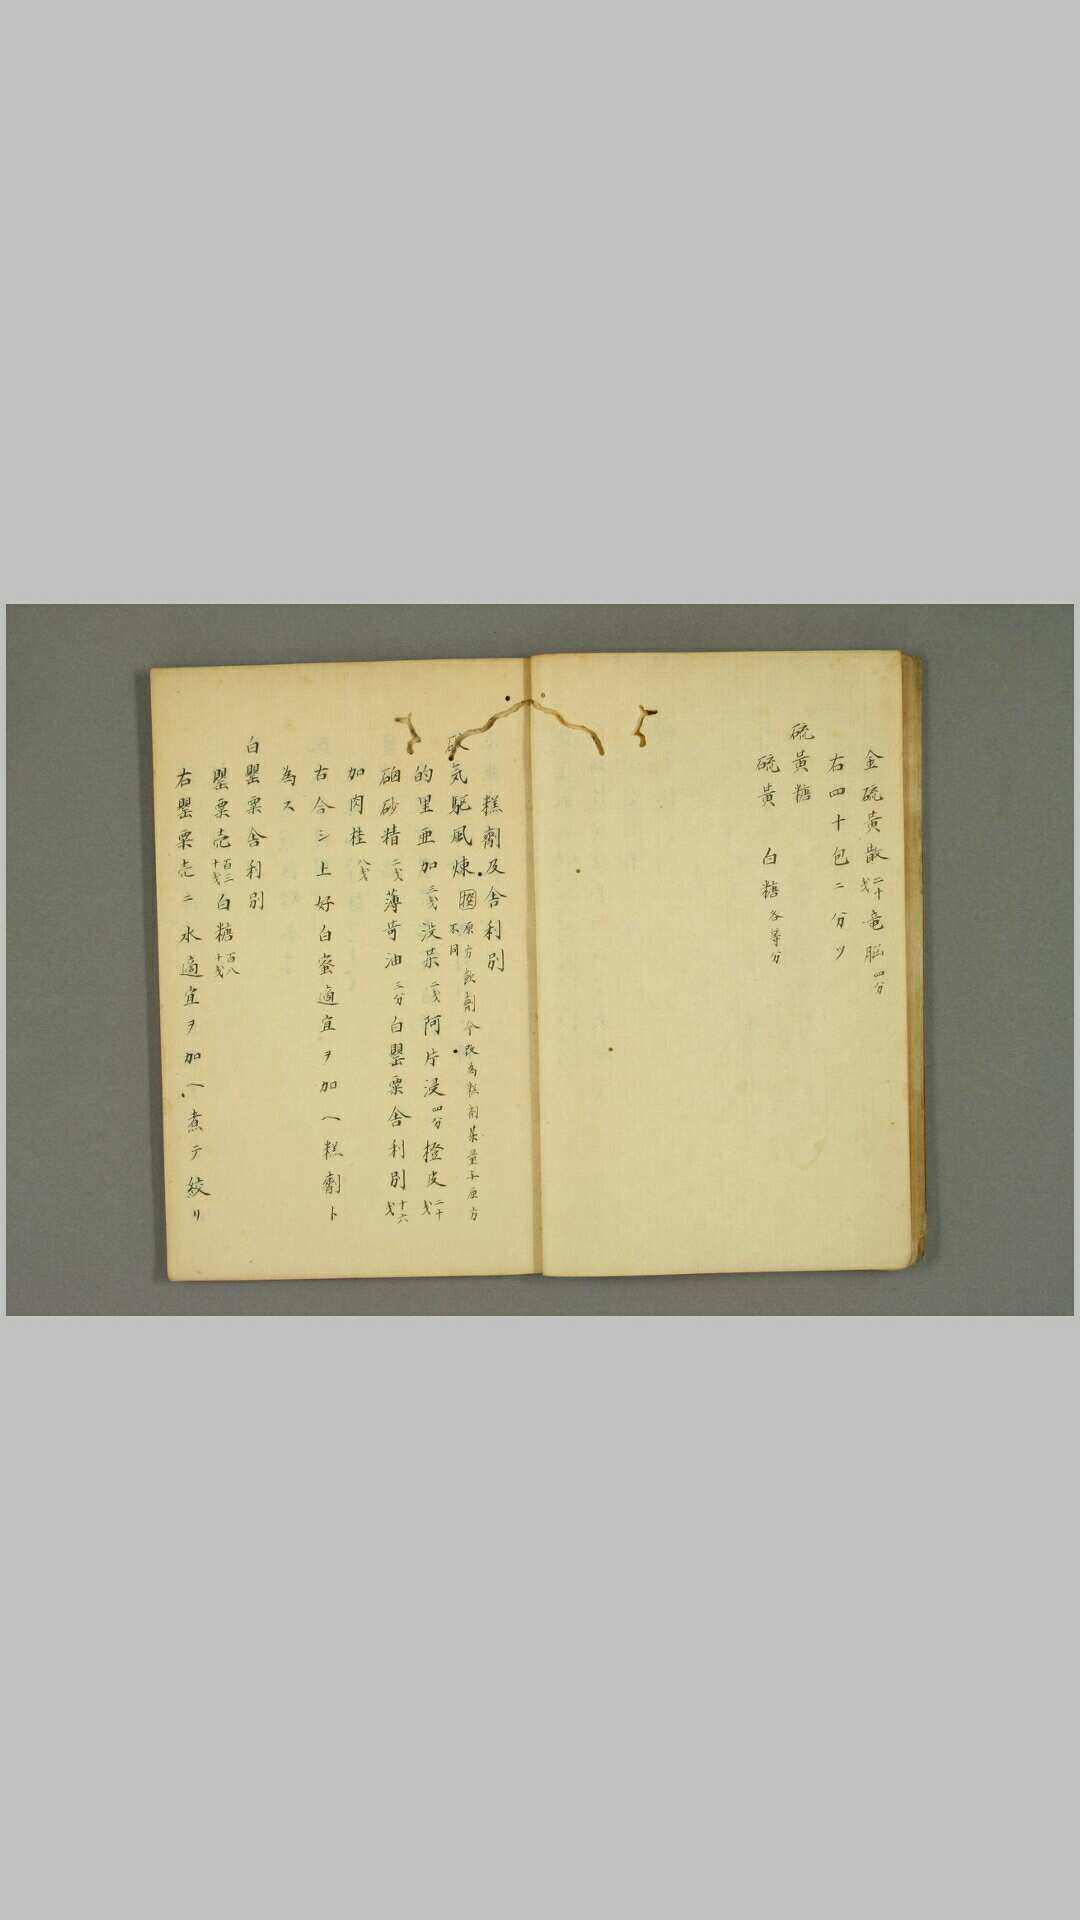 金硫黄散二十戋竜脳四分
右四十包ニ分ツ
硫黄糖
硫黄　白糖各等分
糕劑及舎利別
気駆風煉原方飲劑今改為糕剤薬量与原方不同
的里亜加二戋没薬二戋阿片浸四分橙皮二十戋
硇砂精二戋薄荷油三分白罌粟舎利別十六戋
加肉桂八戋
右合シ上好白蜜適宜ヲ加ヘ糕劑ト
為ス
白罌粟舎利別
罌粟売百二十戋白糖百八十戋
右罌粟売ニ水適宜ヲ加ヘ煮テ絞リ